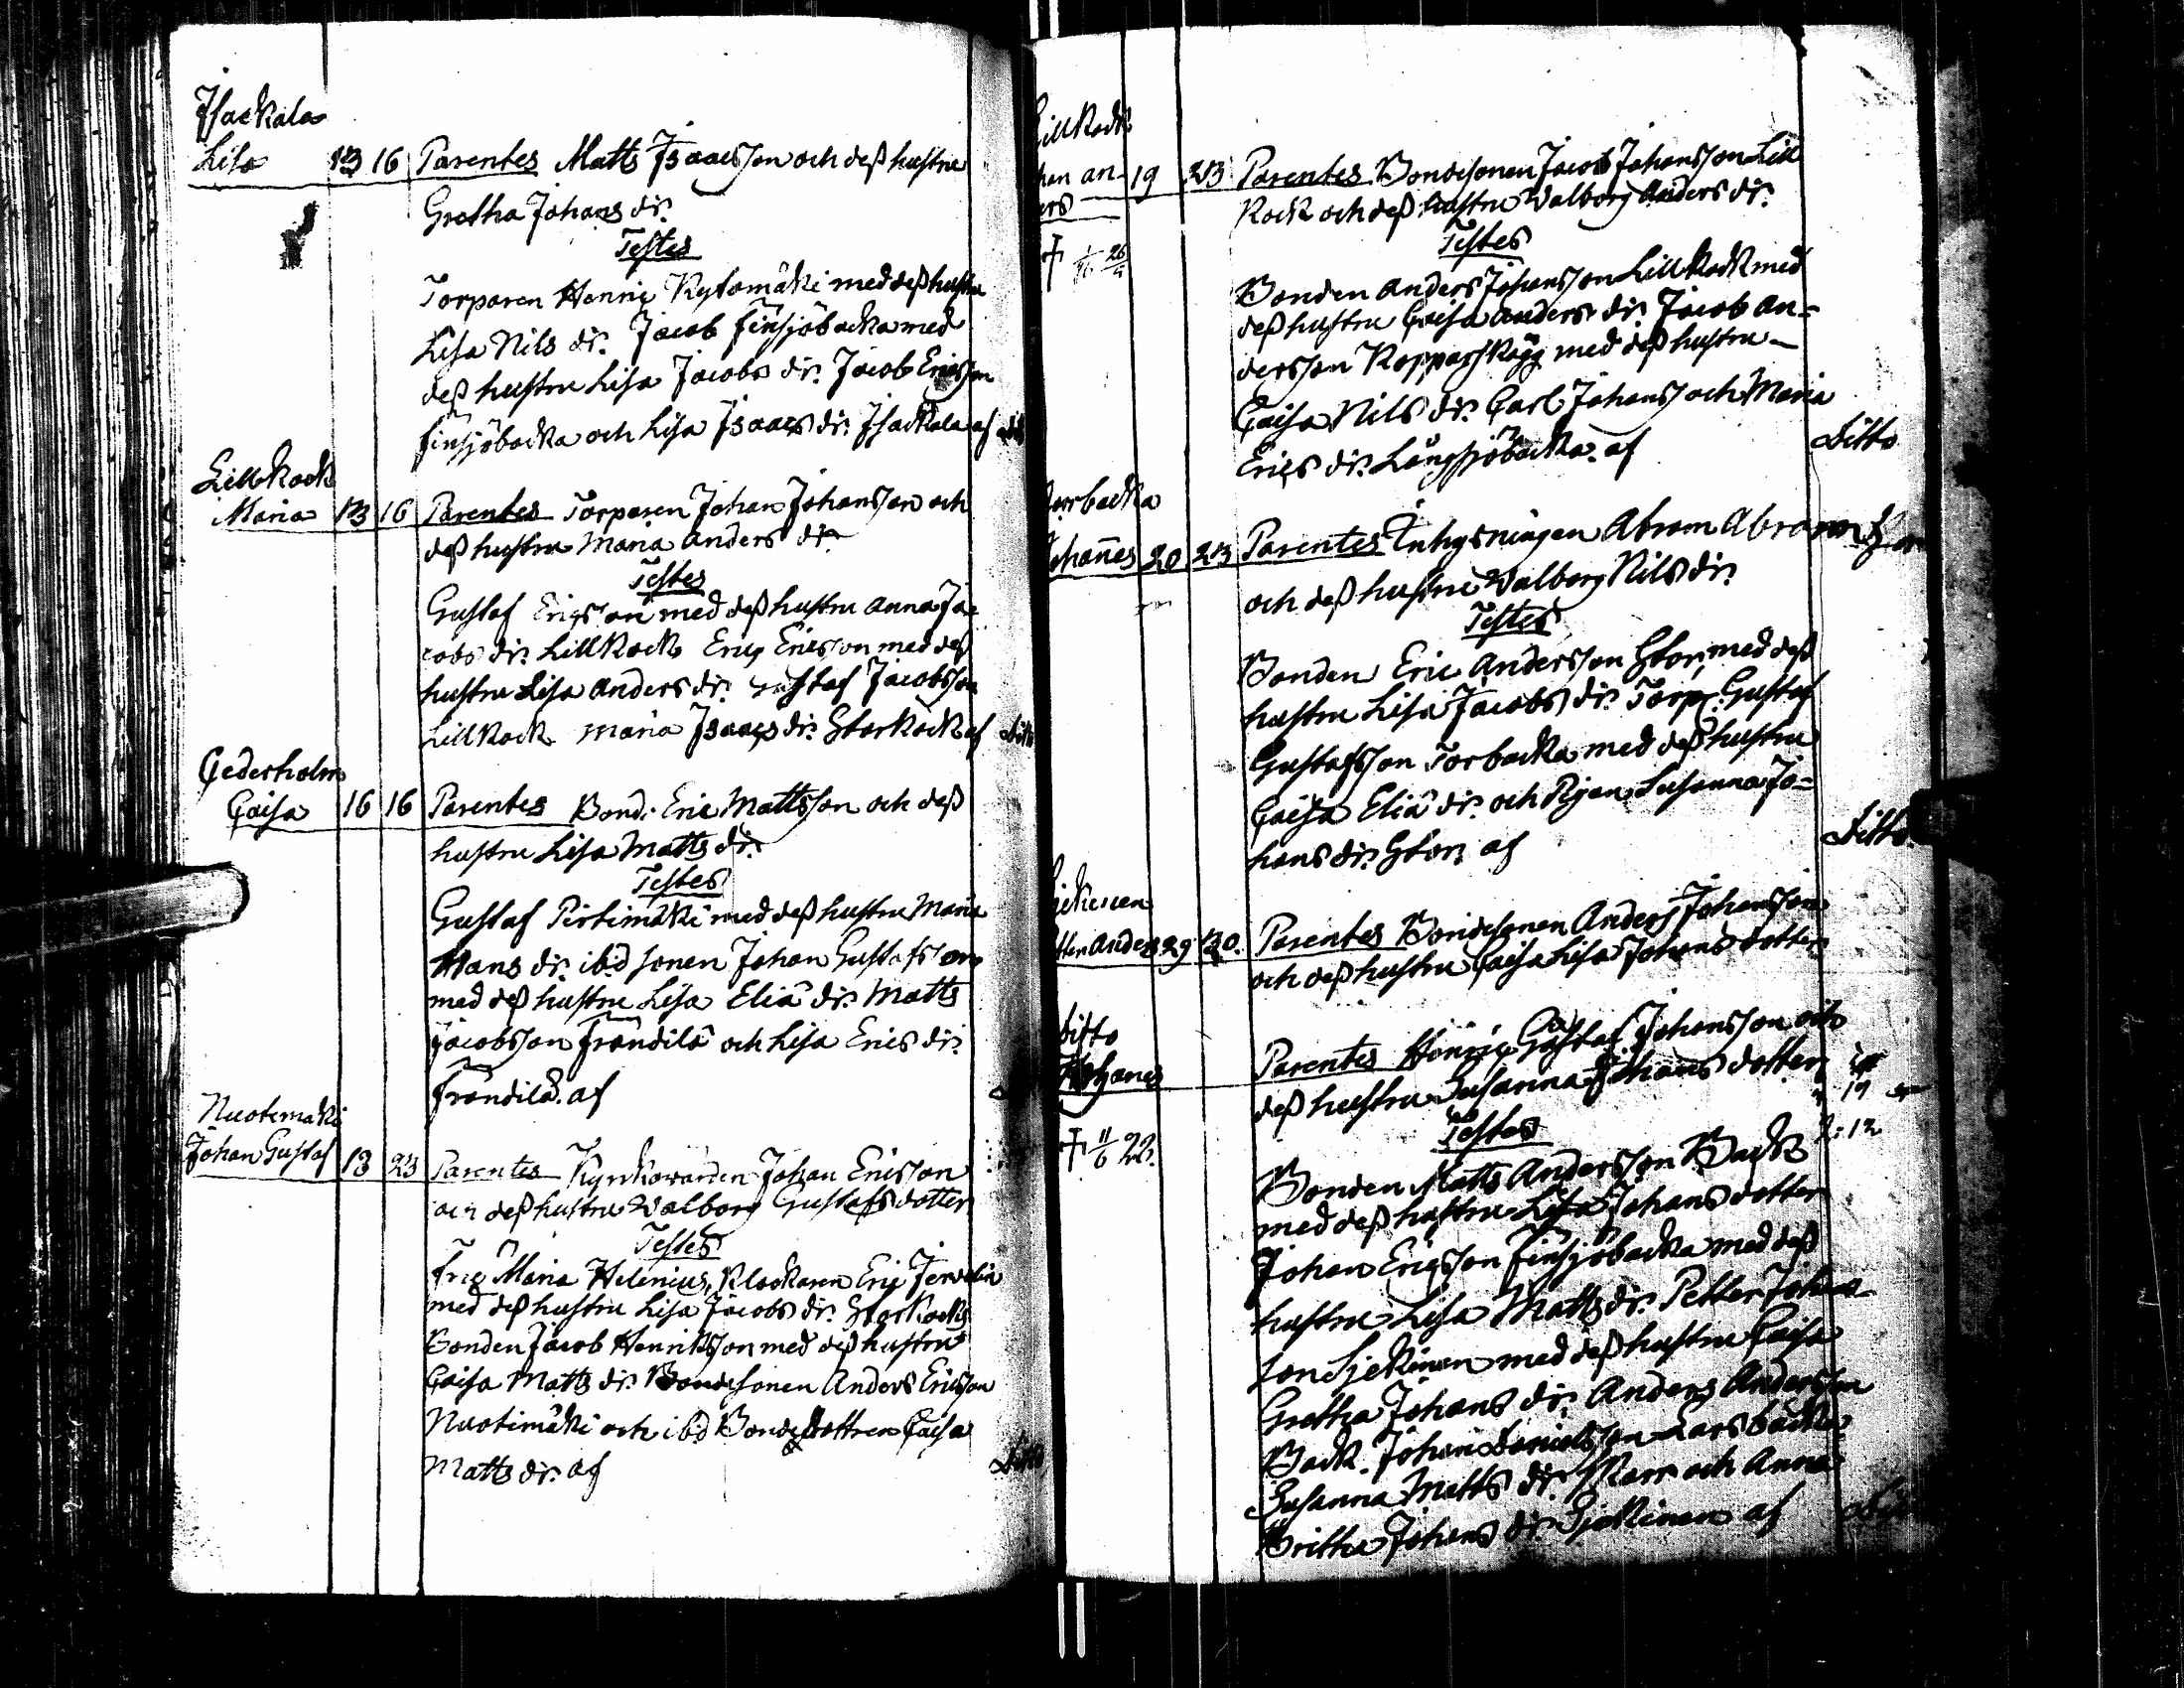 Isackala
Lisa 13 16 Parentes Matts Isaacsson och deß hustru
Gretha Johans dr.
Testes
Torparen Henric Kytömäki med deß hustru
Lisa Nils dr. Jacob Finsjöbacka med
deß hustru Lisa Jacobs dr. Jacob Ericsson
Finsjöbacka och Lisa Isaacs dr. Isackala af
Lillkack
Maria 13 16 Parentes Torparen Johan Johansson och
deß hustru Maria Anders dr
Testes
Gustaf Ericsson med deß hustru Anna Ja-
cobs dr. Lillkack Eric Ericsson med deß
hustru Lisa Anders dr. Gustaf Jacobsson
Lillkack Maria Isaacs dr. Storkack af Ditto
Cederholm
Caisa 16 16 Parentes Bond. Eric Mattsson och deß
hustru Lisa Matts dr.
Testes
Gustaf Pirtimäki med deß hustru Maria
Hans dr. ibd sonen Johan Gustafsson
med deß hustru Lisa Eliä dr. Matts
Jacobsson Frändilä och Lisa Erics dr.
Frändilä. af
Nuotimäki
Johan Gustaf 13 23 Parentes Kyrkowärden Johan Ericsson
och deß hustru Walborg Gustafs dotter
Testes
Maria Helenius, Klockaren Eric
med deß hustru Lisa Jacobs dr. Storkack
Bonden Jacob Henriksson med deß hustru
Caisa Matts dr. Bondesonen Anders Ericsson
Nuotimäki och ibd Bondedottren Caisa
Matts dr. af Ditto
Lillkack
an- 19 23 Parentes Bondesonen Jacob Johansson Lill
ers Kack och deß hustru Walborg Anders dr.
Testes
Bonden Anders Johansson Lillkack med
deß hustru Caisa Anders dr. Jacob An-
dersson med deß hustru
Caisa Nils dr. Carl Johans och Maria
Erics dr. Långsjöbacka. af Ditto
Torbacka
Johannes 20 23 Parentes Inhysningen Abram Abramsson
och deß hustru Walborg Nils dr.
Testes
Bonden Eric Andersson Stor med deß
hustru Lisa Jacobs dr. Torp. Gustaf
Gustafsson Torbacka med deß hustru
Caisa Eliä dr. och Pigan Susanna Jo-
hans dr. Stor af Ditto.
Anders 29 30. Parentes Bondesonen Anders Johansson
och deß hustru Caisa Lisa Johans dotter
Ditto
Johannes Parentes Henric Gustaf Johansson och
deß hustru Susanna Johans dotter
Testes
Bonden Matts Andersson Back
med deß hustru Lisa Johans dotter
Johan Ericsson Finsjöbacka med deß
hustru Lisa Matts dr. Petter Johans-
son Sjekinen med deß hustru Caisa
Gretha Johans dr. Anders Andersson
Back. Johan Danielsson Larsbacka
Susanna Matts dr. och Anna
Britha Johans dr. Sjekinen af